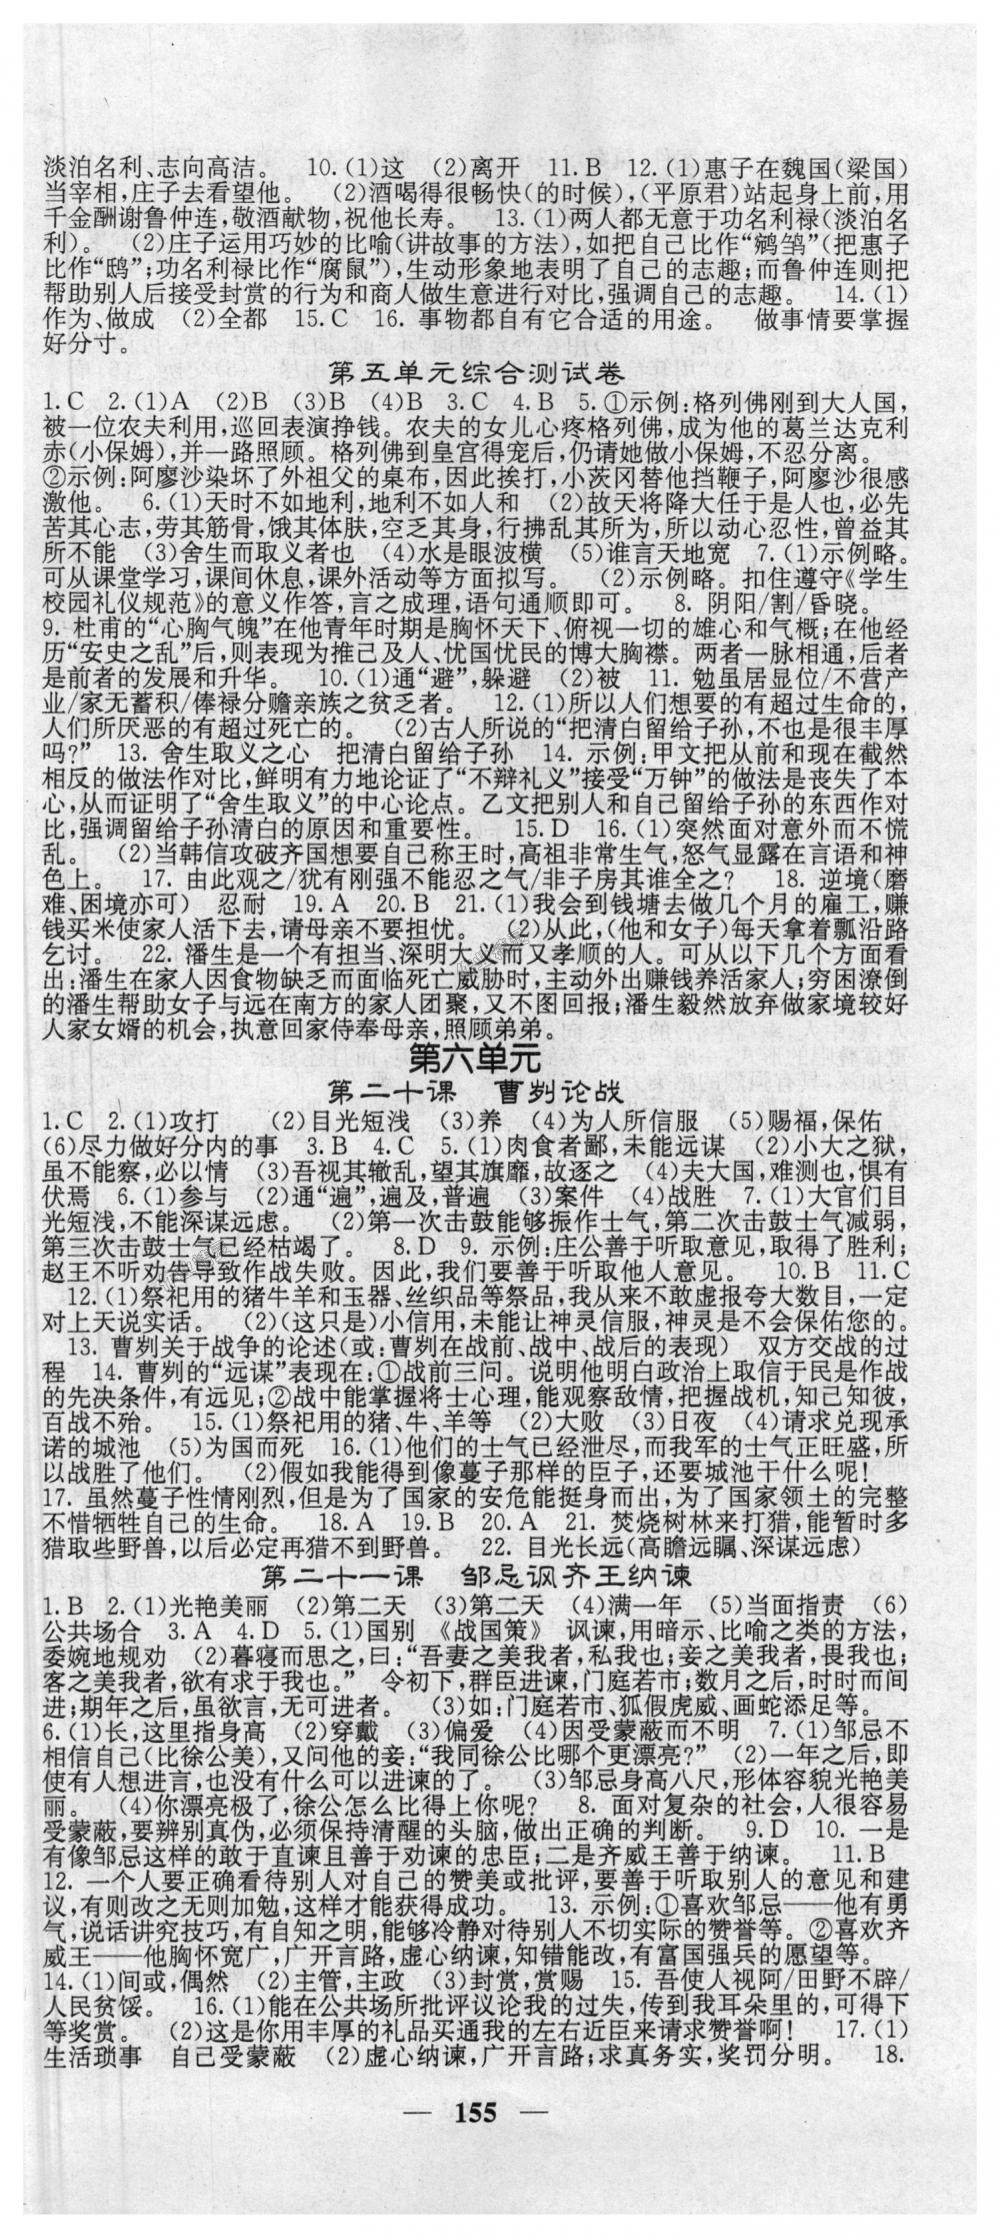 淡泊名利、志向高洁。 10.(1)这 (2)离开 11.B 12.(1)惠子在魏国(梁国)
当宰相,庄子去看望他。 (2)酒喝得很畅快(的时候),(平原君)站起身上前,用
千金酬谢鲁仲连,敬酒献物,祝他长寿。 13.(1)两人都无意于功名利禄(淡泊名
利)。 (2)庄子运用巧妙的比喻(讲故事的方法),如把自己比作“鹓鶵”(把惠子
比作“鸱”;功名利禄比作“腐鼠”),生动形象地表明了自己的志趣;而鲁仲连则把
帮助别人后接受封赏的行为和商人做生意进行对比,强调自己的志趣。 14.(1)
作为、做成 (2)全都 15.C 16. 事物都自有它合适的用途。 做事情要掌握
好分寸。
第五单元综合测试卷
1.C 2.(1)A (2)B (3)B (4)B 3.C 4.B 5.①示例:格列佛刚到大人国,
被一位农夫利用,巡回表演挣钱。农夫的女儿心疼格列佛,成为他的葛兰达克利
赤(小保姆),并一路照顾。格列佛到皇宫得宠后,仍请她做小保姆,不忍分离。
②示例:阿廖沙染坏了外祖父的桌布,因此挨打,小茨冈替他挡鞭子,阿廖沙很感
激他。 6.(1)天时不如地利,地利不如人和 (2)故天将降大任于是人也,必先
苦其心志,劳其筋骨,饿其体肤,空乏其身,行拂乱其所为,所以动心忍性,曾益其
所不能 (3)舍生而取义者也 (4)水是眼波横 (5)谁言天地宽 7.(1)示例略。
可从课堂学习,课间休息,课外活动等方面拟写。 (2)示例略。扣住遵守《学生
校园礼仪规范》的意义作答,言之成理,语句通顺即可。 8. 阴阳/割/昏晓。
9. 杜甫的“心胸气魄”在他青年时期是胸怀天下、俯视一切的雄心和气概;在他经
历“安史之乱”后,则表现为推己及人、忧国忧民的博大胸襟。两者一脉相通,后者
是前者的发展和升华。 10.(1)通“避”,躲避 (2)被 11. 勉虽居显位/不营产
业/家无蓄积/俸禄分赡亲族之贫乏者。 12.(1)所以人们想要的有超过生命的,
人们所厌恶的有超过死亡的。 (2)古人所说的“把清白留给子孙,不也是很丰厚
吗?” 13. 舍生取义之心 把清白留给子孙 14. 示例:甲文把从前和现在截然
相反的做法作对比,鲜明有力地论证了“不辩礼义”接受“万钟”的做法是丧失了本
心,从而证明了“舍生取义”的中心论点。乙文把别人和自己留给子孙的东西作对
比,强调留给子孙清白的原因和重要性。 15.D 16.(1)突然面对意外而不慌
乱。 (2)当韩信攻破齐国想要自己称王时,高祖非常生气,怒气显露在言语和神
色上。 17. 由此观之/犹有刚强不能忍之气/非子房其谁全之? 18. 逆境(磨
难、困境亦可) 忍耐 19.A 20.B 21.(1)我会到钱塘去做几个月的雇工,赚
钱买米使家人活下去,请母亲不要担忧。 (2)从此,(他和女子)每天拿着瓢沿路
乞讨。 22. 潘生是一个有担当、深明大义而又孝顺的人。可从以下几个方面看
出:潘生在家人因食物缺乏而面临死亡威胁时,主动外出赚钱养活家人;穷困潦倒
的潘生帮助女子与远在南方的家人团聚,又不图回报;潘生毅然放弃做家境较好
人家女婿的机会,执意回家侍奉母亲,照顾弟弟。
第六单元
第二十课 曹刿论战
1.C 2.(1)攻打 (2)目光短浅 (3)养 (4)为人所信服 (5)赐福,保佑
(6)尽力做好分内的事 3.B 4.C 5.(1)肉食者鄙,未能远谋 (2)小大之狱,
虽不能察,必以情 (3)吾视其辙乱,望其旗靡,故逐之 (4)夫大国,难测也,惧有
伏焉 6.(1)参与 (2)通“遍”,遍及,普遍 (3)案件 (4)战胜 7.(1)大官们目
光短浅,不能深谋远虑。 (2)第一次击鼓能够振作士气,第二次击鼓士气减弱,
第三次击鼓士气已经枯竭了。 8.D 9. 示例:庄公善于听取意见,取得了胜利;
赵王不听劝告导致作战失败。因此,我们要善于听取他人意见。 10.B 11.C
12.(1)祭祀用的猪牛羊和玉器、丝织品等祭品,我从来不敢虚报夸大数目,一定
对上天说实话。 (2)(这只是)小信用,未能让神灵信服,神灵是不会保佑您的。
13. 曹刿关于战争的论述(或:曹刿在战前、战中、战后的表现) 双方交战的过
程 14. 曹刿的“远谋”表现在:①战前三问。说明他明白政治上取信于民是作战
的先决条件,有远见;②战中能掌握将士心理,能观察敌情,把握战机,知己知彼,
百战不殆。 15.(1)祭祀用的猪、牛、羊等 (2)大败 (3)日夜 (4)请求兑现承
诺的城池 (5)为国而死 16.(1)他们的士气已经泄尽,而我军的士气正旺盛,所
以战胜了他们。 (2)假如我能得到像蔓子那样的臣子,还要城池干什么呢!
17. 虽然蔓子性情刚烈,但是为了国家的安危能挺身而出,为了国家领土的完整
不惜牺牲自己的生命。 18.A 19.B 20.A 21. 焚烧树林来打猎,能暂时多
猎取些野兽,以后必定再猎不到野兽。 22. 目光长远(高瞻远瞩、深谋远虑)
第二十一课 邹忌讽齐王纳谏
1.B 2.(1)光艳美丽 (2)第二天 (3)第二天 (4)满一年 (5)当面指责 (6)
公共场合 3.A 4.D 5.(1)国别 《战国策》 讽谏,用暗示、比喻之类的方法,
委婉地规劝 (2)暮寝而思之,曰:“吾妻之美我者,私我也;妾之美我者,畏我也;
客之美我者,欲有求于我也。” 令初下,群臣进谏,门庭若市;数月之后,时时而间
进;期年之后,虽欲言,无可进者。 (3)如:门庭若市、狐假虎威、画蛇添足等。
6.(1)长,这里指身高 (2)穿戴 (3)偏爱 (4)因受蒙蔽而不明 7.(1)邹忌不
相信自己(比徐公美),又问他的妾:“我同徐公比哪个更漂亮?” (2)一年之后,即
使有人想进言,也没有什么可以进谏的了。 (3)邹忌身高八尺,形体容貌光艳美
丽。 (4)你漂亮极了,徐公怎么比得上你呢? 8. 面对复杂的社会,人很容易
受蒙蔽,要辨别真伪,必须保持清醒的头脑,做出正确的判断。 9.D 10. 一是
有像邹忌这样的敢于直谏且善于劝谏的忠臣;二是齐威王善于纳谏。 11.B
12. 一个人要正确看待别人对自己的赞美或批评,要善于听取别人的意见和建
议,有则改之无则加勉,这样才能获得成功。 13. 示例:①喜欢邹忌——他有勇
气,说话讲究技巧,有自知之明,能够冷静对待别人不切实际的赞誉等。②喜欢齐
威王——他胸怀宽广,广开言路,虚心纳谏,知错能改,有富国强兵的愿望等。
14.(1)间或,偶然 (2)主管,主政 (3)封赏,赏赐 15. 吾使人视阿/田野不辟/
人民贫馁。 16.(1)能在公共场所批评议论我的过失,传到我耳朵里的,可得下
等奖赏。 (2)这是你用丰厚的礼品买通我的左右近臣来请求赞誉啊! 17.(1)
生活琐事 自己受蒙蔽 (2)虚心纳谏,广开言路;求真务实,奖罚分明。 18.
— 155 —